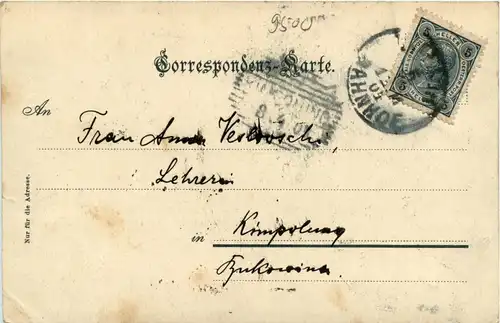 9500
Correspondenz-Karte.
An
Frau Anna
Lehrerin
in Kimpolung
Bukowina
Nur für die Adresse.
5 HELLER 5